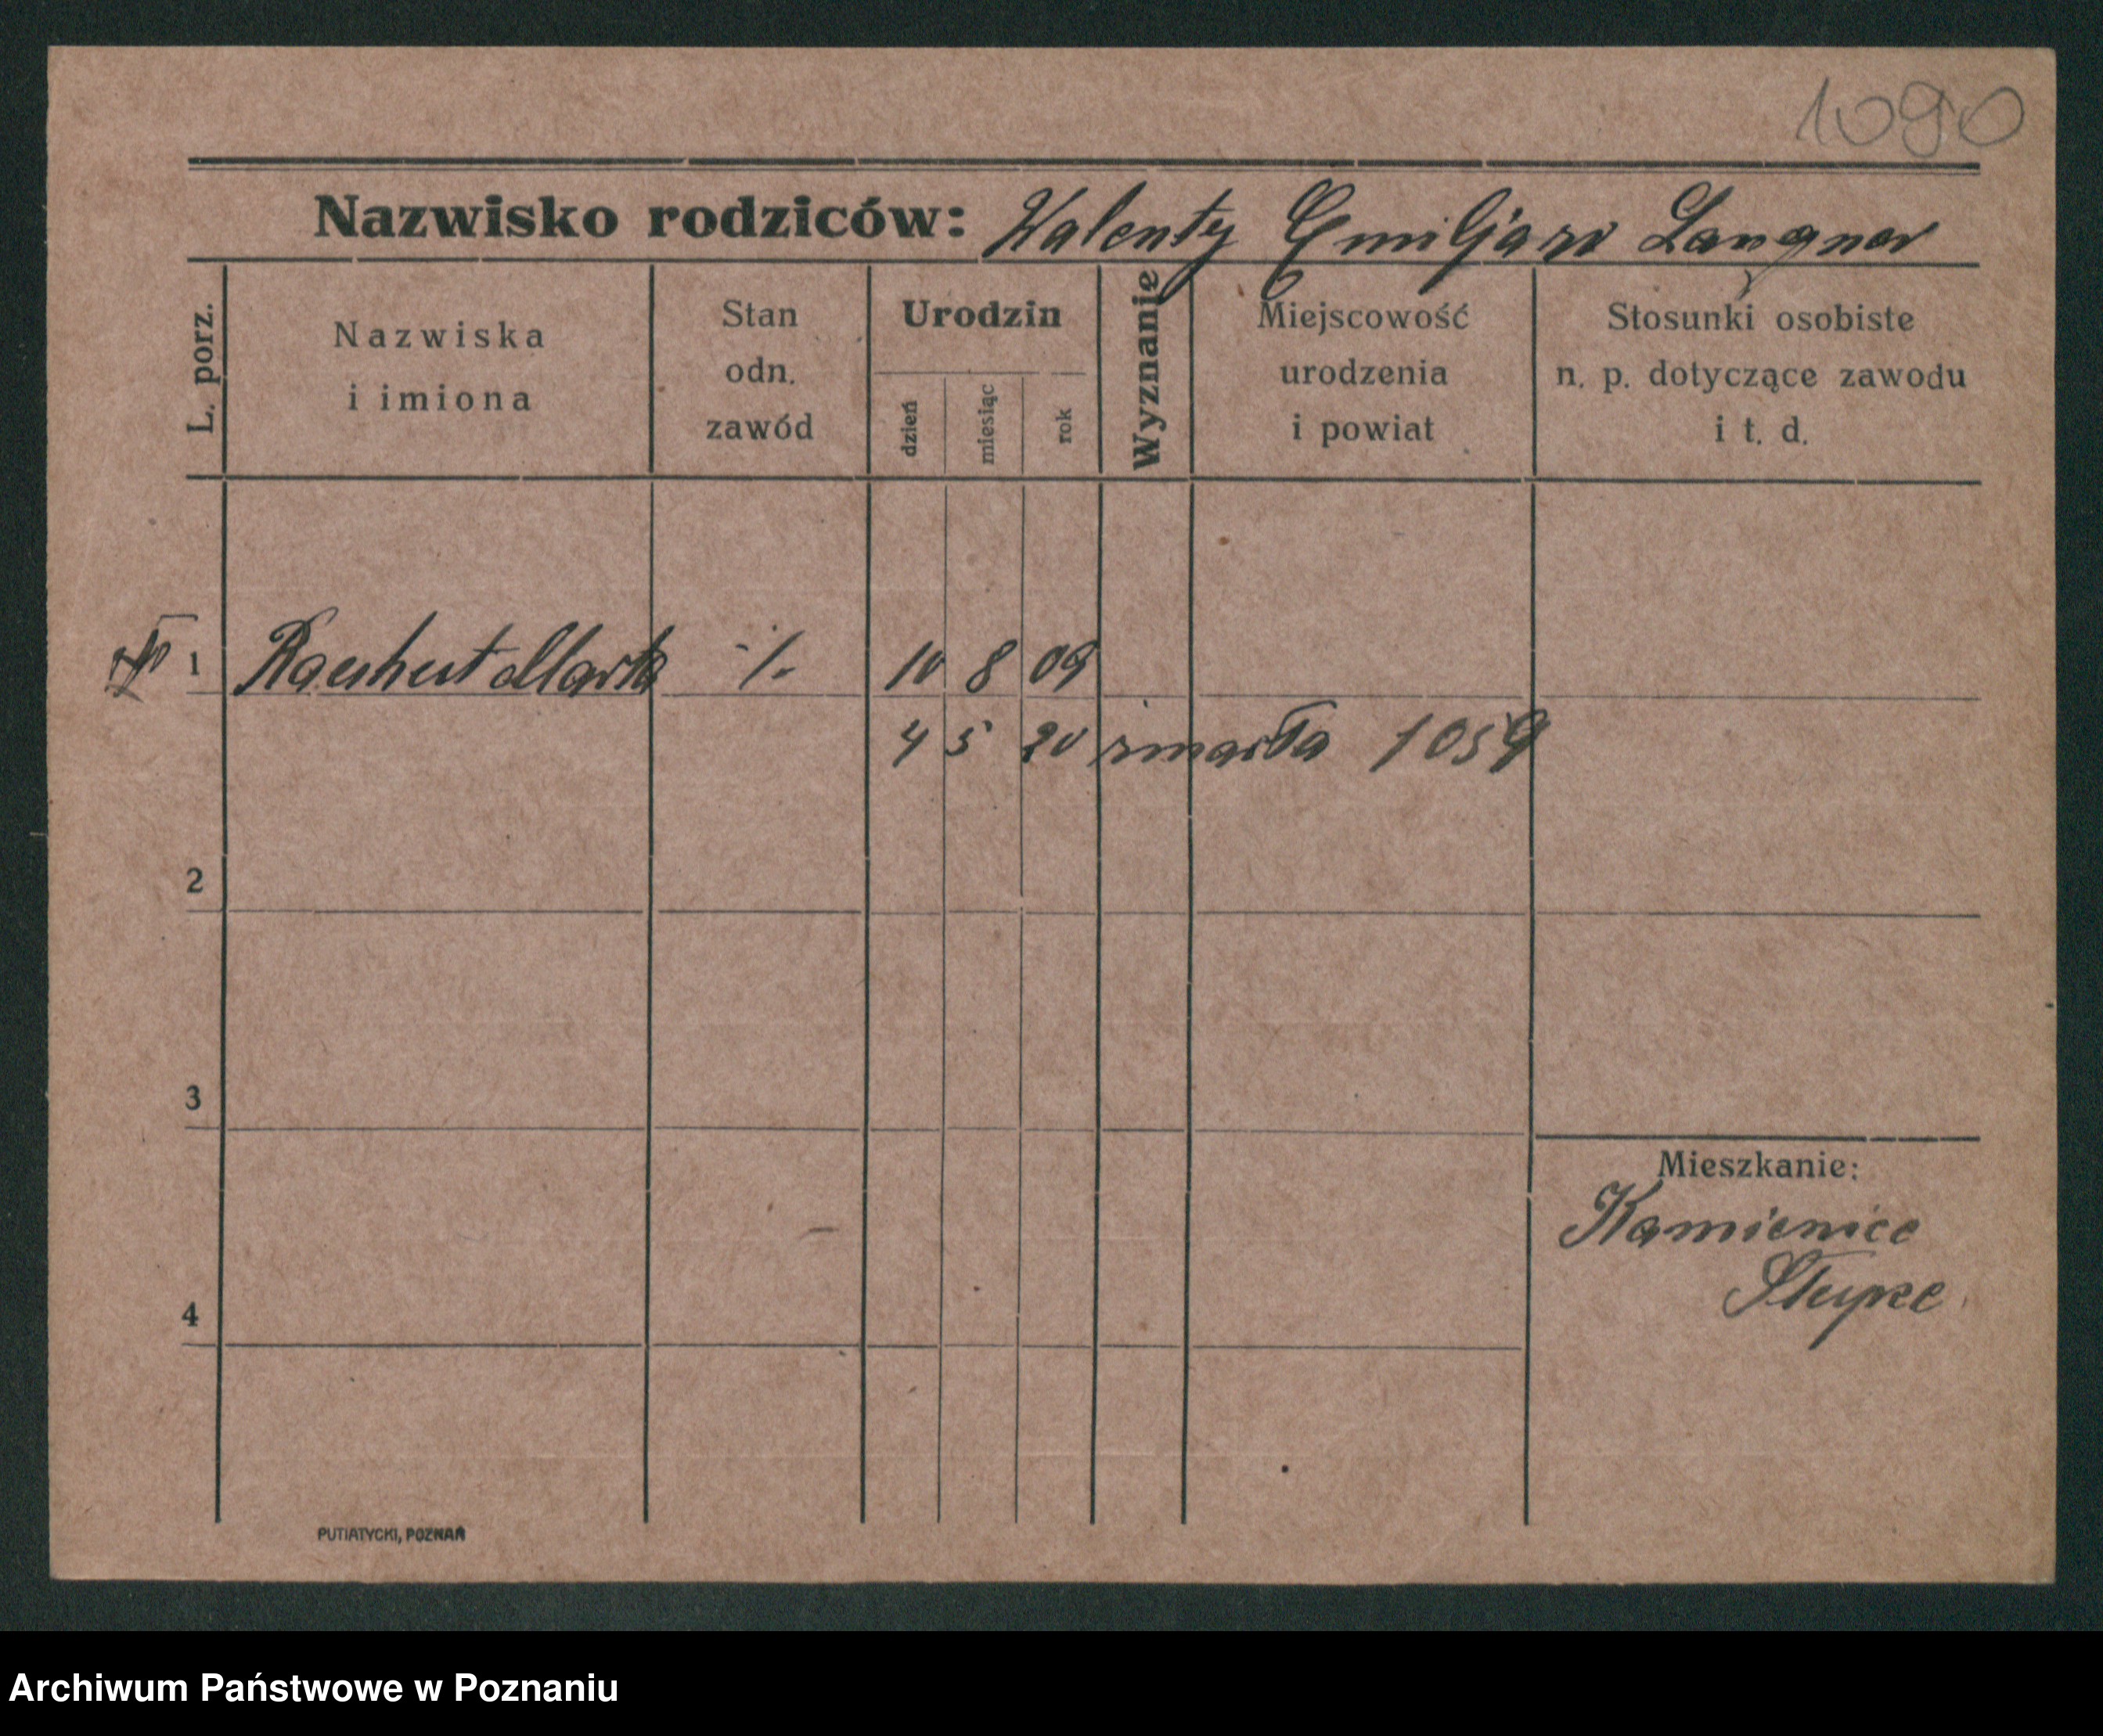 1090
Nazwisko rodziców: Walenty Emiljan Langner
L. porz.
Nazwiska
i imiona
Stan
odn.
zawód
Urodzin
dzień
miesiąc
rok
Wyznanie
Miejscowość
urodzenia
i powiat
Stosunki osobiste
n. p. dotyczące zawodu
i t. d.
1 Marta -/- 10 8 09
4 5 20 zmarła 1059
2
3
Mieszkanie:
Kamienice
Słupce
4
PUTIATYCKI, POZNAŃ
Archiwum Państwowe w Poznaniu